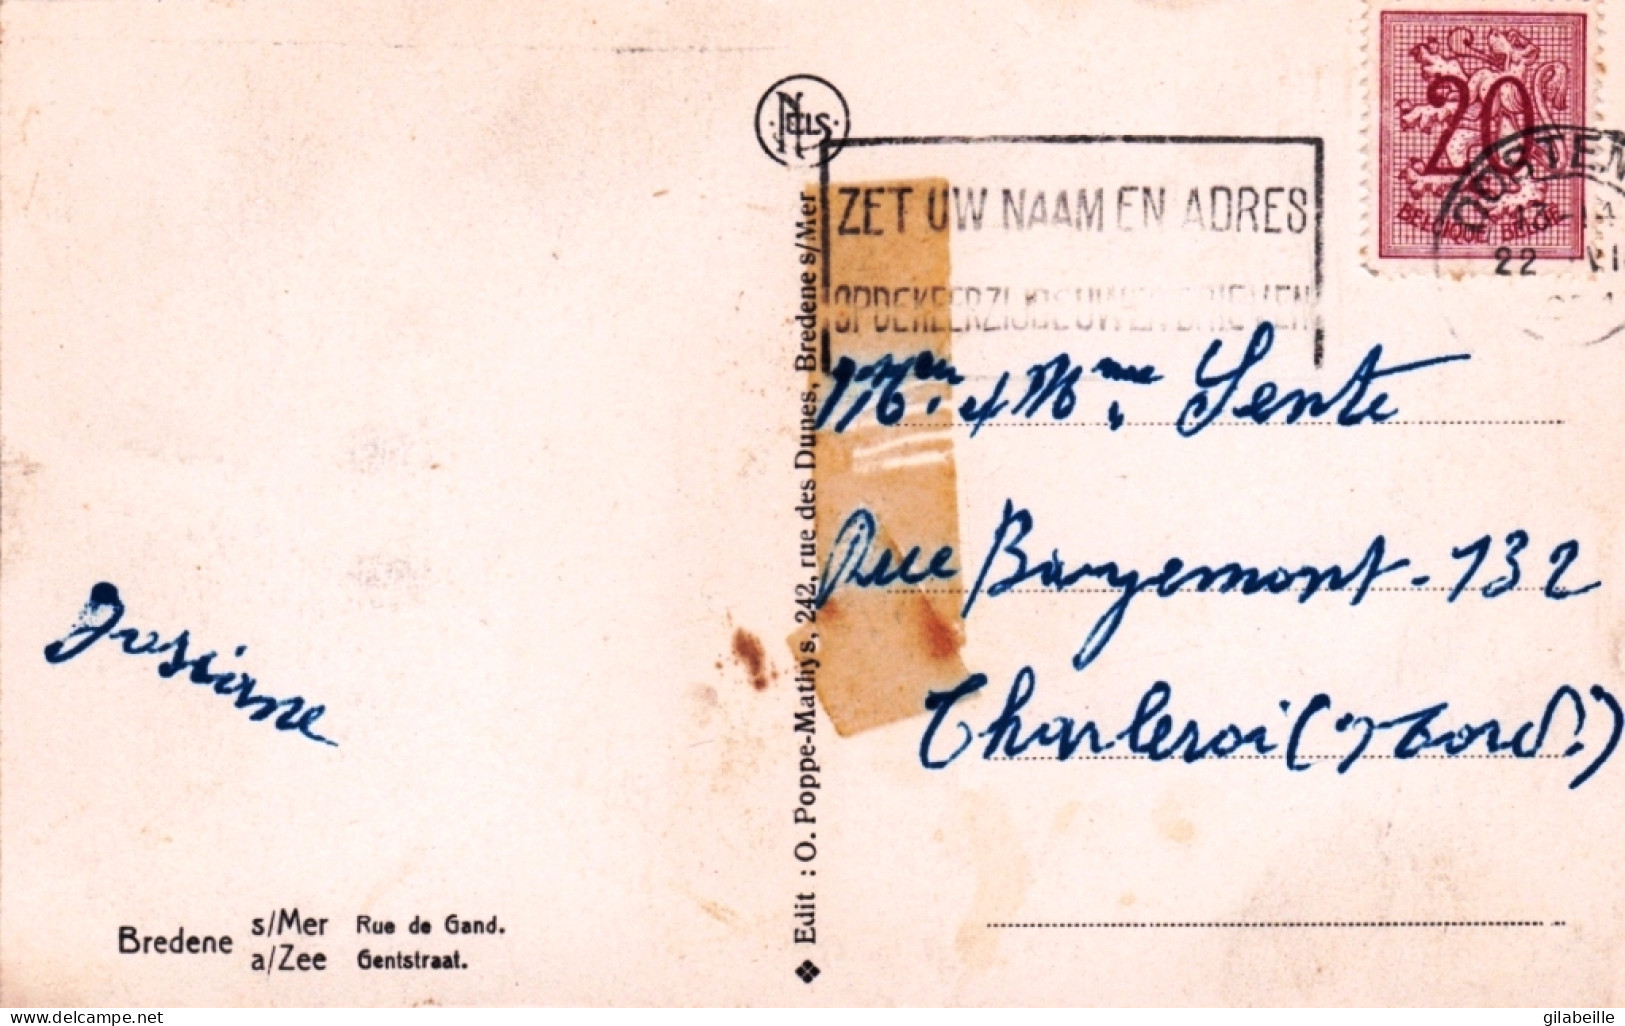 NELS
20
BELGIQUE BELGIE
OOSTEN
13-14
22 VII
ZET UW NAAM EN ADRES
OP DE KEERZIJDE UWER BRIEVEN
Edit : O. Poppe-Mathys, 242, rue des Dunes, Bredene s/Mer
Mr. & Mme. Sente
Rue Bayemont - 132
Charleroi (Nord.)
Josiane
Bredene s/Mer Rue de Gand.
a/Zee Gentstraat.
delcampe.net
gilabeille